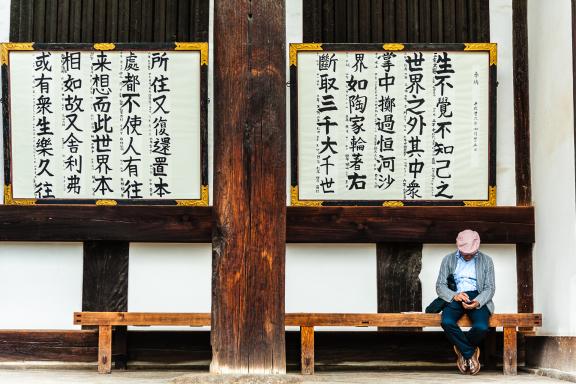 斷取三千大千世
界如陶家輪著右
掌中擲過恒河沙
世界之外其中衆
生不覺不知己之
奉納
所住又復還置本
處都不使人有往
来想而此世界本
相如故又舍利弗
或有衆生樂久往